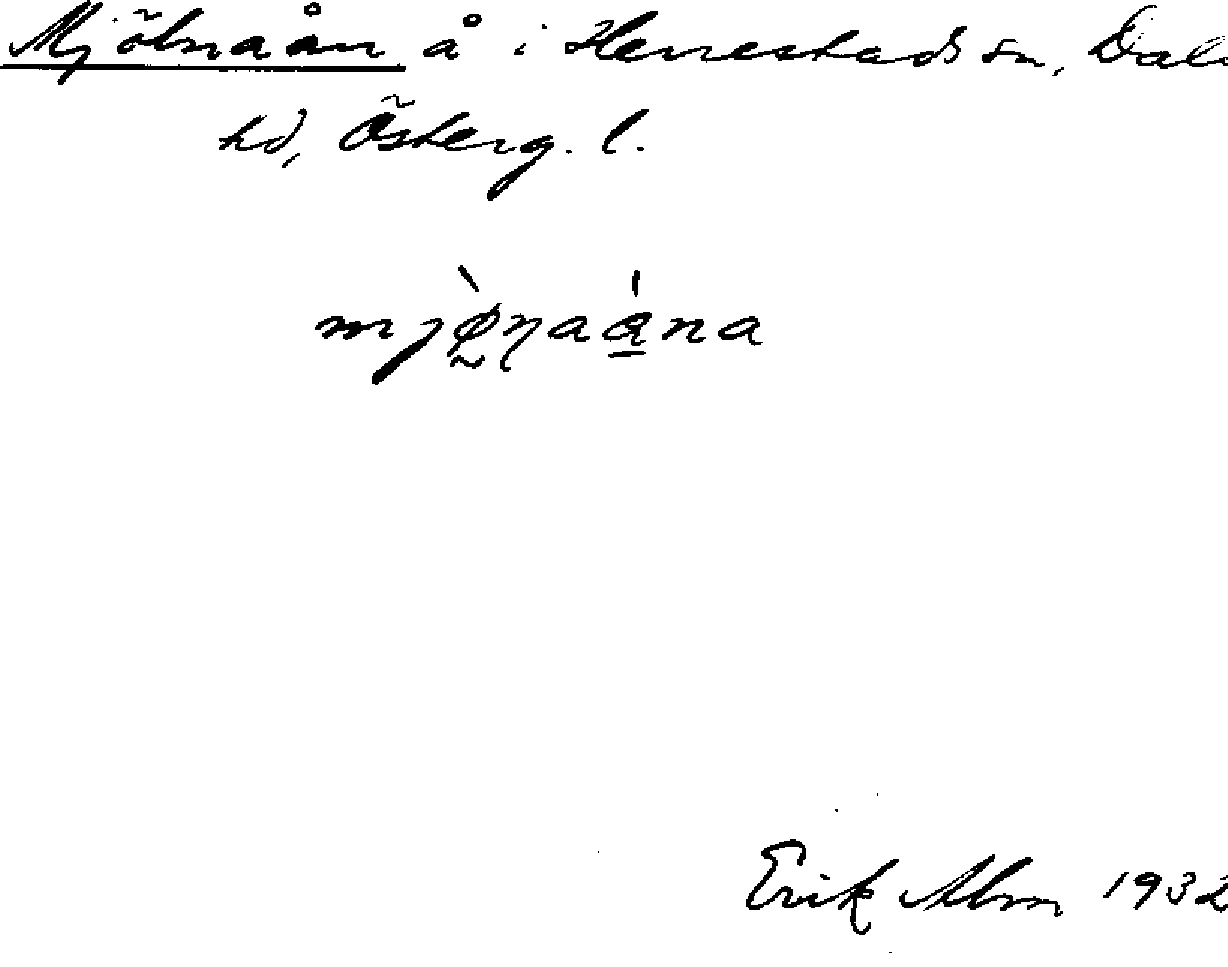 Mjölnaån å i Herrestads sn, Dals
hd, Österg. l.
mjø̀ṇaa̲̍na
Erik Alm 1932